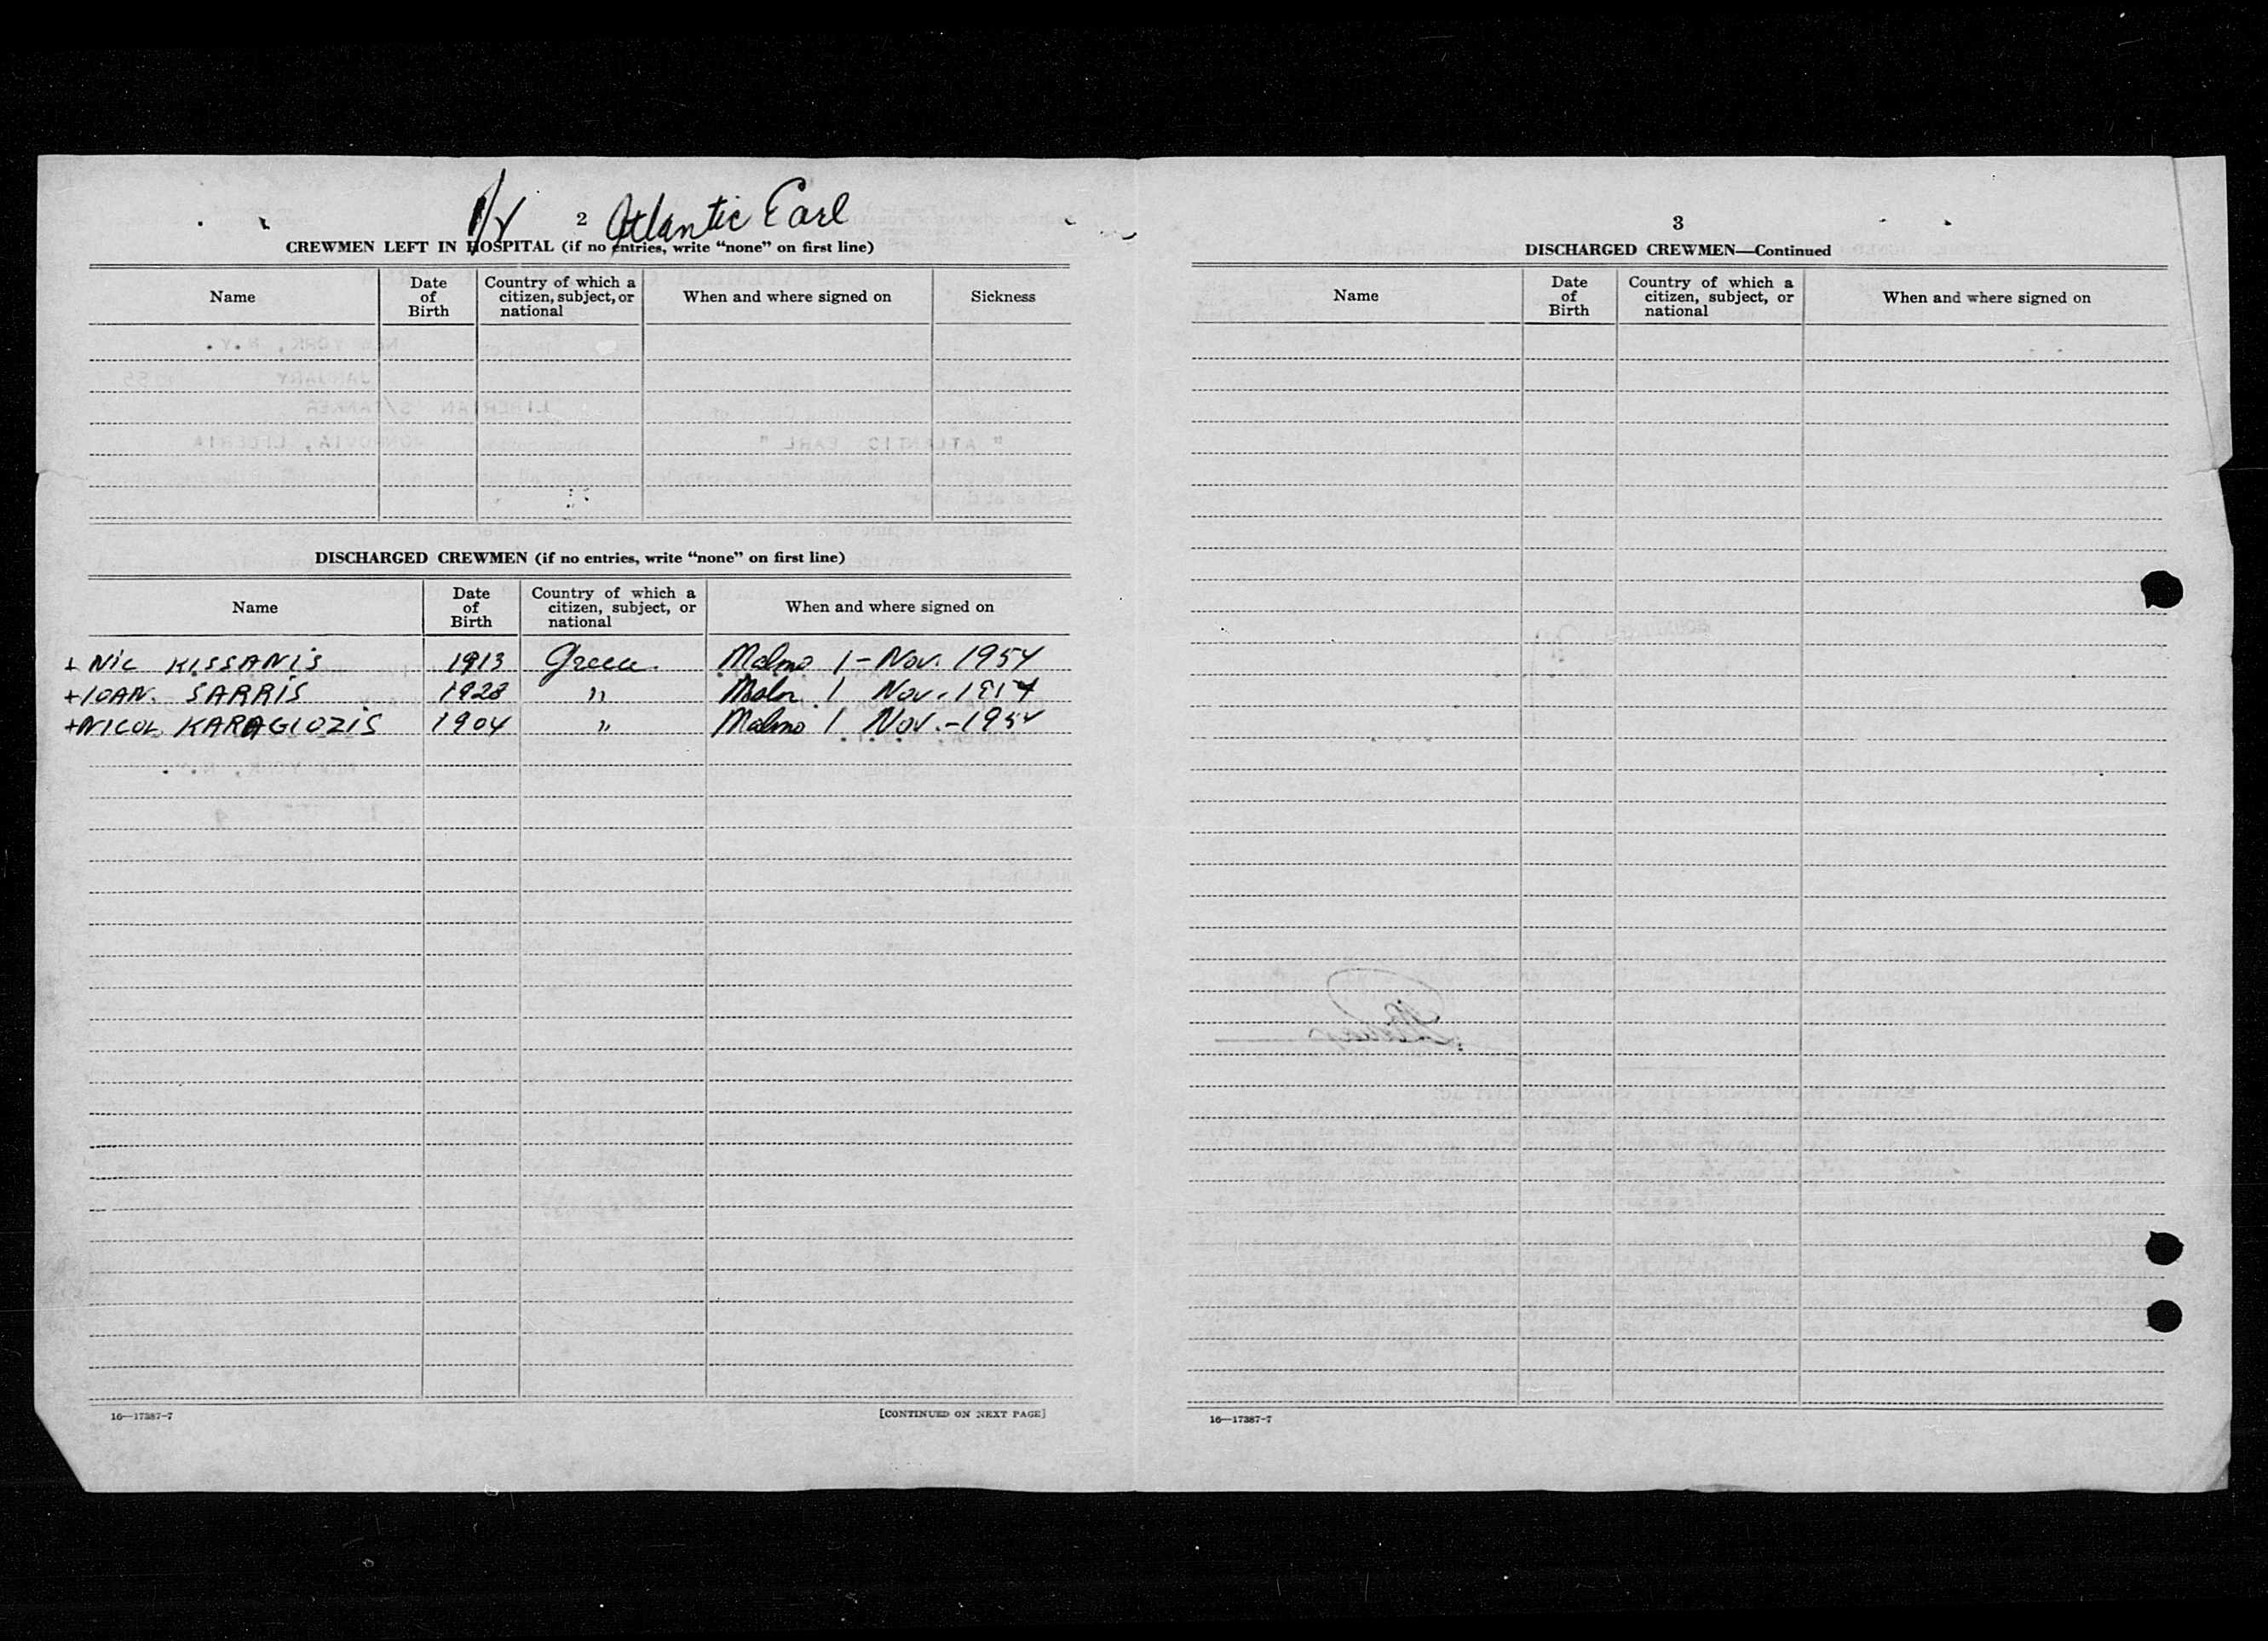 2 Atlantic Earl
CREWMEN LEFT IN HOSPITAL (if no entries, write “none” on first line)
Name
Date of Birth
Country of which a citizen, subject, or national
When and where signed on
Sickness
NEW YORK, N.Y.
JANUARY
LIBERIAN S/TANKER
" ATLANTIC EARL "
MONROVIA, LIBERIA
DISCHARGED CREWMEN (if no entries, write “none” on first line)
Name
Date of Birth
Country of which a citizen, subject, or national
When and where signed on
+ NIC KISSANIS 1913 Greece. Malmo 1 - Nov. 1954
+IOAN. SARRIS 1928 " 1 Nov. 1954
+NICOL KARAGIOZIS 1904 " Malmo 1 Nov. - 1954
NEW YORK, N.Y.
16—17387-7
[CONTINUED ON NEXT PAGE]
3
DISCHARGED CREWMEN—Continued
Name
Date of Birth
Country of which a citizen, subject, or national
When and where signed on
16—17387-7